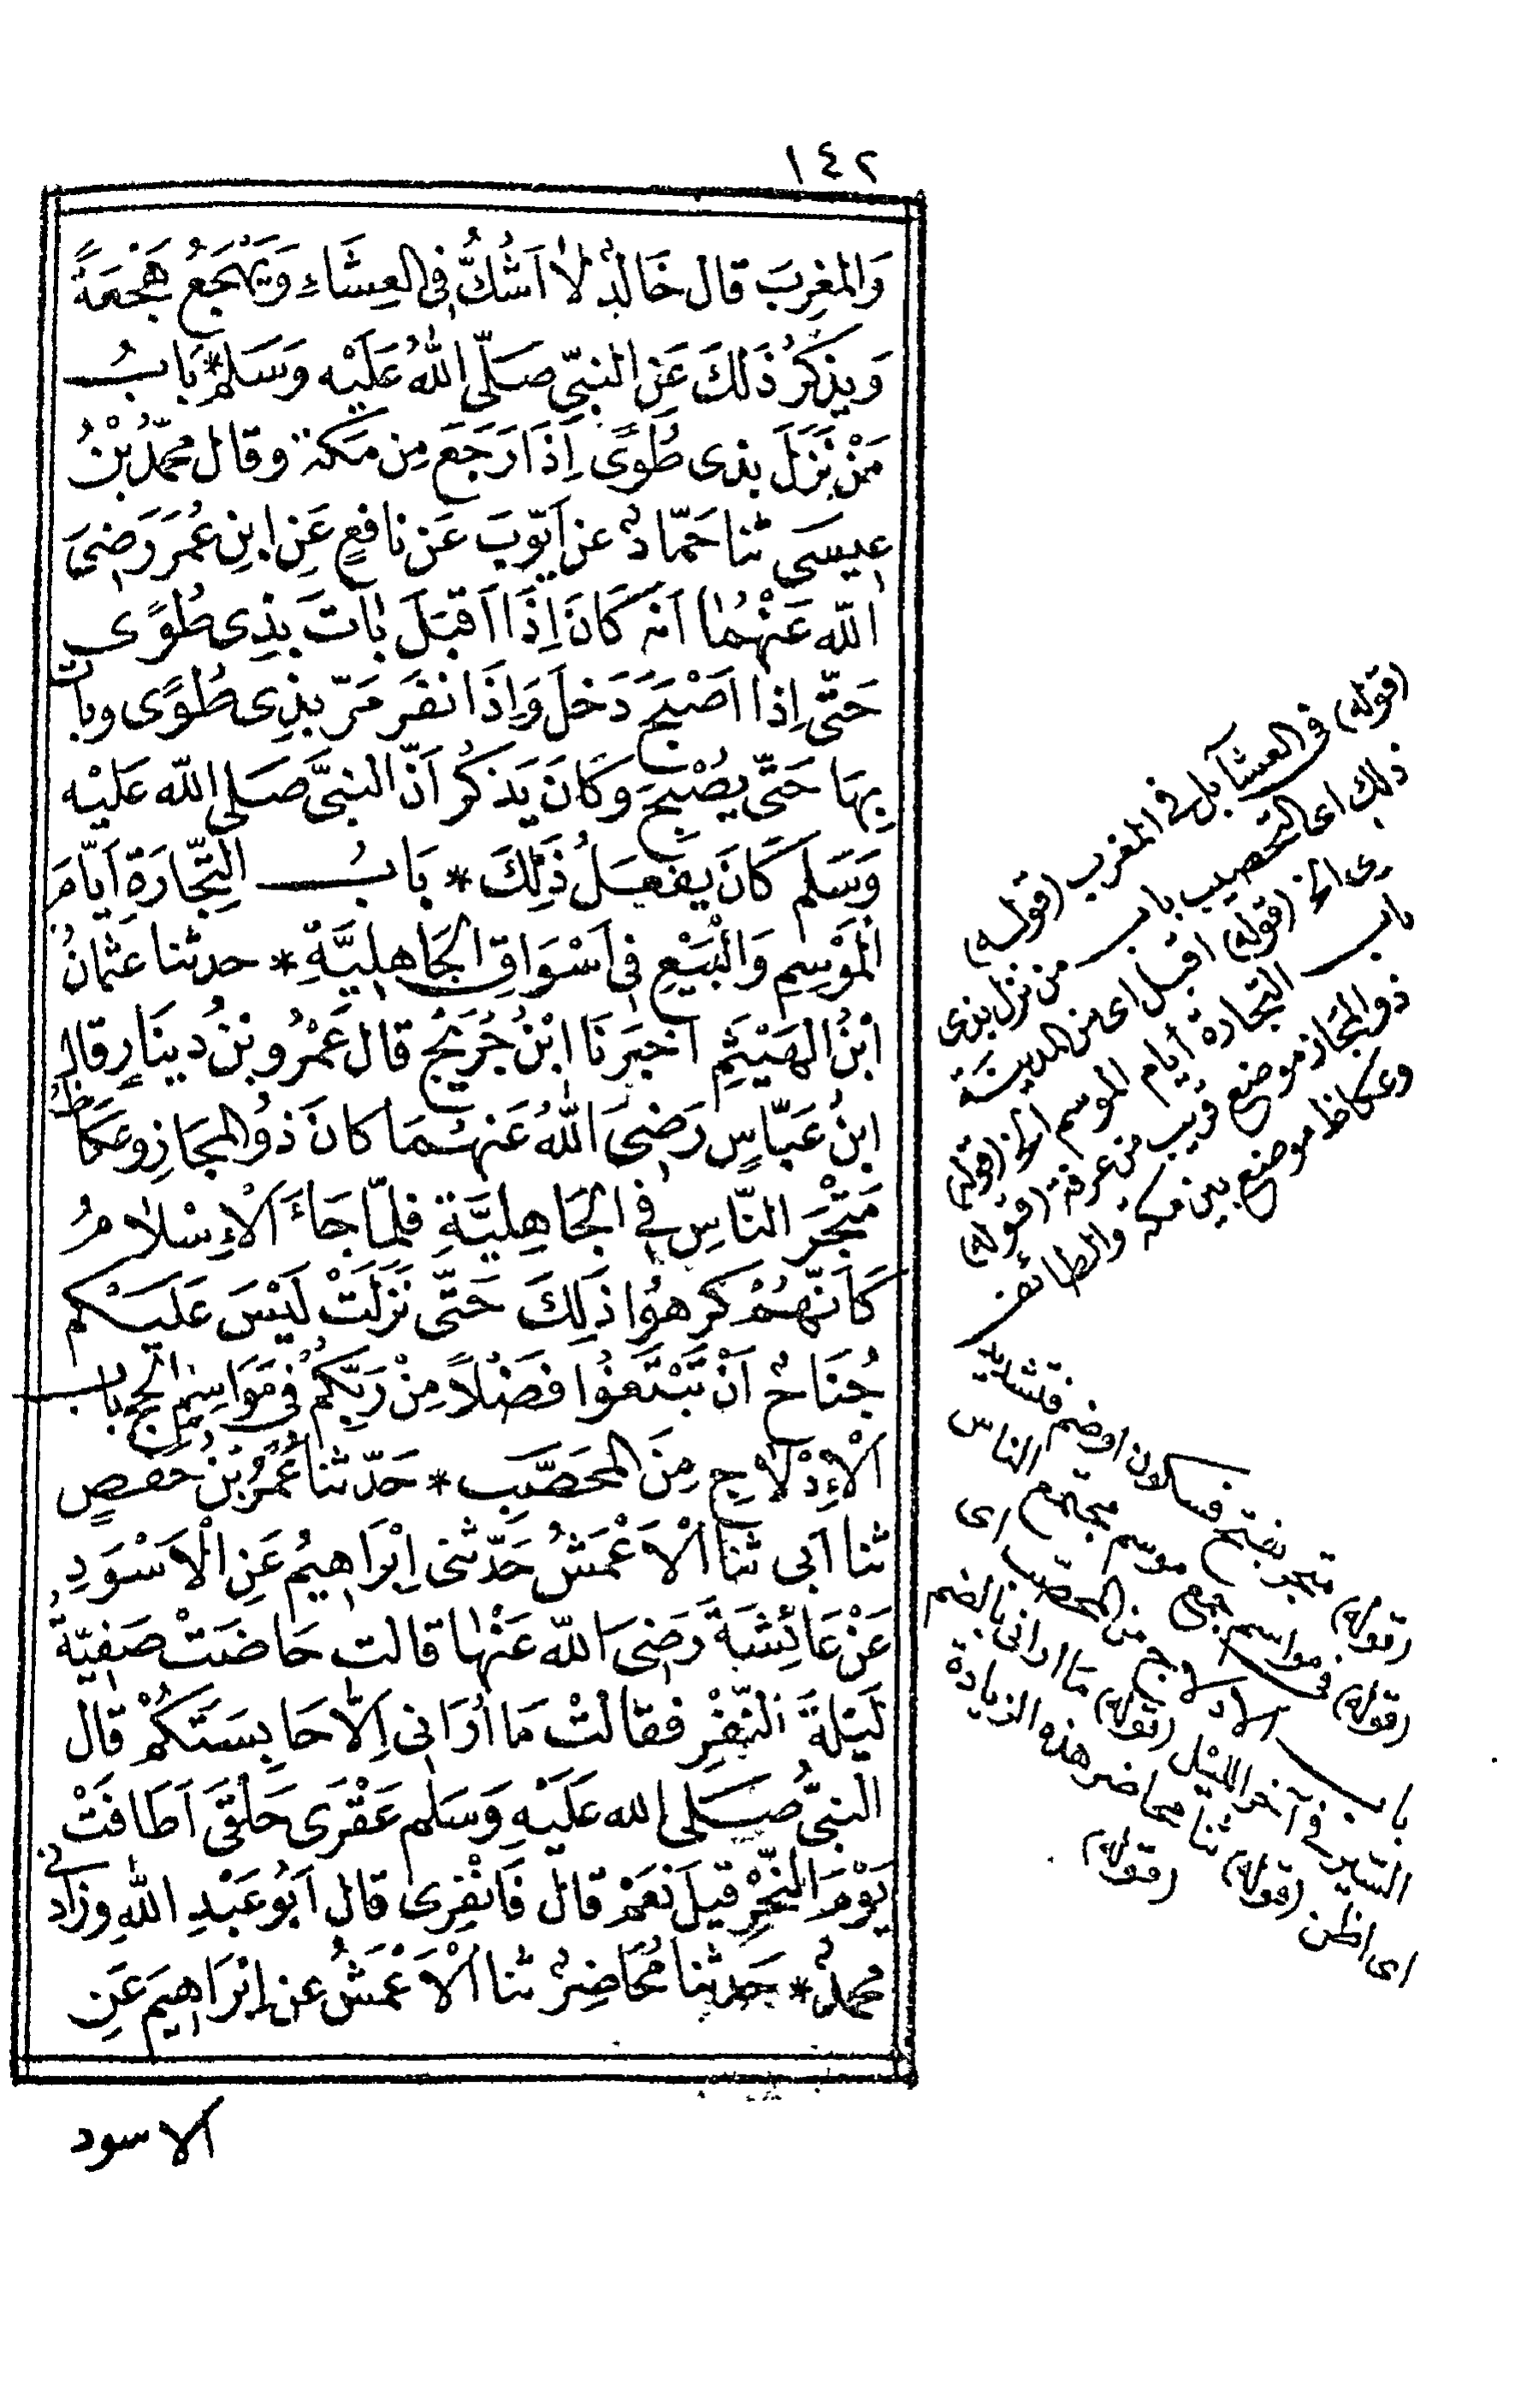 ١٤٢
وَالمَغرِبَ قال خَالدٌ لَا اَشُكُّ فِى العِشَاءِ وَيَهْجَعُ هَجْعَةً
وَيذكُرُ ذَلكَ عَنِ النبيّ صَلّى اللهُ عَلَيْه وَسَلم * بَابُ
مَنْ نَزَلَ بذى طُوًى اِذَا رَجَعَ مِن مَكة وقال محمّدُ بْنُ
عيسَى ثنا حَمّادٌ عن اَيّوبَ عَن نافعٍ عَنِ ابنِ عُمَرَ رَضىَ
الله عَنْهُمَا اَنه كَانَ اِذَا اَقبَلَ بَاتَ بذِى طُوًى
حَتّى اِذا اَصْبَحَ دَخلَ وَاِذَا نفَر مَرّ بذِى طُوًى وباتَ
بِهَا حَتّى يصْبحَ وَكَانَ يَذكُر اَنّ النبىَّ صَلى الله عَليْه
وَسَلم كَانَ يفعَلُ ذَلِكَ * بَابُ التِّجَارَةِ اَيّامَ
الْمَوْسِمِ وَالْبَيْعِ فى اَسْوَاقِ الجَاهِلِيَّةِ * حدثنا عثمانُ
ابنُ الهَيْثَمِ اَخبَرنَا ابْنُ جُرَيْجٍ قال عَمْرُو بْنُ دينَارٍ قال
ابنُ عَبّاسٍ رَضِىَ اللهُ عَنهمَا كانَ ذوُ المجَازِ وعكَاظُ
مَتْجَرَ النّاسِ فِى الجَاهِلِيَّةِ فلمّا جَاءَ اَلْاِسْلامُ
كَاَنّهُمْ كَرِهوُا ذَلِكَ حَتّى نَزَلَتْ لَيْسَ عَلَيْكم
جُنَاحٌ اَنْ تَبْتَغوُا فَضْلًا مِنْ رَبّكُمْ فى مَوَاسِمِ الحجِّ باب
اَلْاِدْلَاجِ مِنَ المحَصَّبِ * حَدّثنا عُمَرُ بْنُ حَفصٍ
ثنا اَبى ثنا اَلْاَعْمَشُ حَدّثنى اِبْرَاهِيمُ عَنِ الْاَسْوَدِ
عَنْ عَائِشَةَ رَضىَ الله عَنْها قالت حَاضَتْ صَفِيّةُ
لَيْلةَ النّفْرِ فقالَتْ مَا اُرَانى اِلَّا حَابِسَتَكُمْ قال
النبىُّ صَلى الله عَلَيْهِ وَسَلم عَقْرَى حَلْقَى اَطَافَتْ
يَوْمَ النّحْرِ قيلَ نَعَمْ قال فَانْفِرى قال اَبُو عَبْدِ اللهِ وزَادَنى
محمدٌ * حَدثنا مُحَاضِرٌ ثنا اَلْاَعْمَشُ عن اِبْرَاهِيمَ عَنِ
الاسود
(قوله) فى العشا بل فى المغرب (قوله)
ذلك اى التحصيب باب من نزل بذى
وى الخ (قوله) اقبل اى من المدينة
باب التجارة أيام الموسم الخ (قوله)
ذو المجاز موضع قريب من عرفة (قوله)
وعكاظ موضع بين مكة والطائف
(قوله) متجر بفتح فسكون اوضم فتشديد
(قوله) فى مواسم جمع موسم مجتمع الناس
باب الادلاج من المحصب اى
السير فى آخر الليل (قوله) ما ارانى بالضم
اى اظن (قوله) ثنا محاضر هذه الزيادة
(قوله)